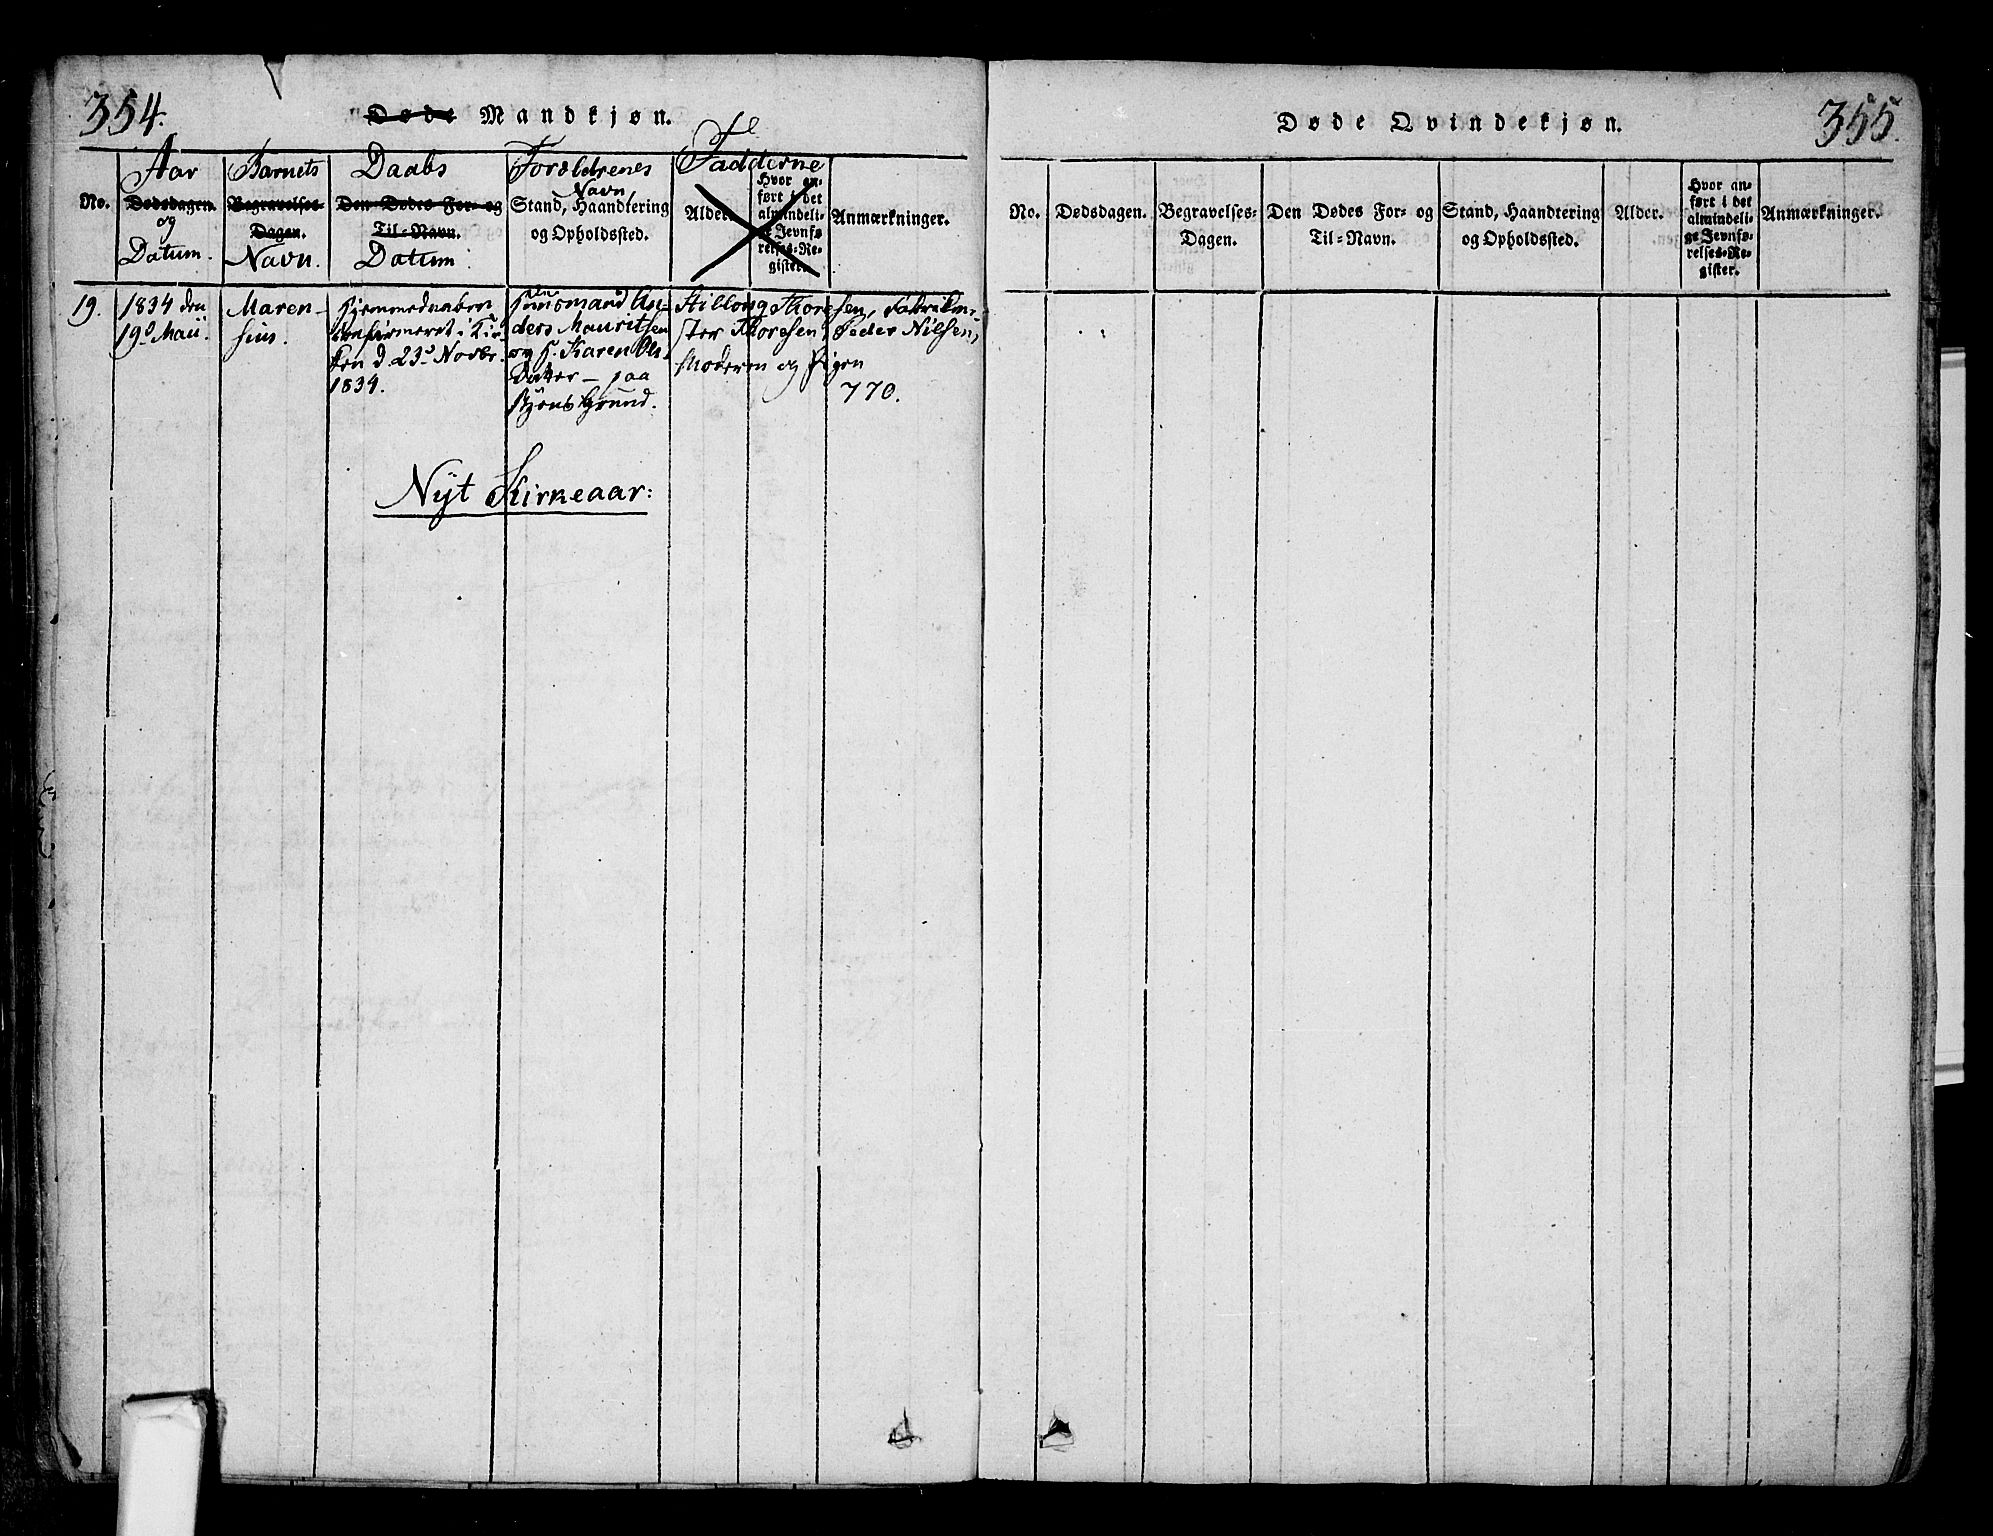 354.
Døde Mandkjøn.
No.
Aar
Dødsdagen.
og
Datum.
Barnets
Begravelses-
Dagen.
Navn.
Daabs
Den Dødes For- og
Til-Navn.
Datum
Forældrenes
Navn,
Stand, Haandtering
og Opholdssted.
Fadderne
Alder.
Hvor an-
ført i det
almindeli-
ge Jevnfø-
relses-Re-
gister.
Anmærkninger.
19.
1834 den
19d Maii.
Maren-
sius.
Hjemmedaabon
Confirmeret i Kir-
ken d. 23d Novbr.
1834.
Huusmand An-
ders Mauritsen
og H. Karen Ols-
Datter – paa
Grund.
Thoresen,
ster Thoresen, Peder Nielsen,
Moderen og Pigen
770.
Nyt Kirkeaar:
355.
Døde Qvindekjøn.
No.
Dødsdagen.
Begravelses-
Dagen.
Den Dødes For- og
Til-Navn.
Stand, Haandtering
og Opholdssted.
Alder.
Hvor an-
ført i det
almindeli-
ge Jevnfø-
relses-Re-
gister.
Anmærkninger.